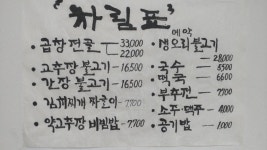 차림표
곱창전골 33,000
22,000
고추장불고기 16,500
간장불고기 16,500
김치찌개 짜글이 7,700
약고추장비빔밥 7,700
예약
생오리불고기
28,000
국수 5500
떡국 6600
부추전 7700
소주·맥주 4000
공기밥 1000